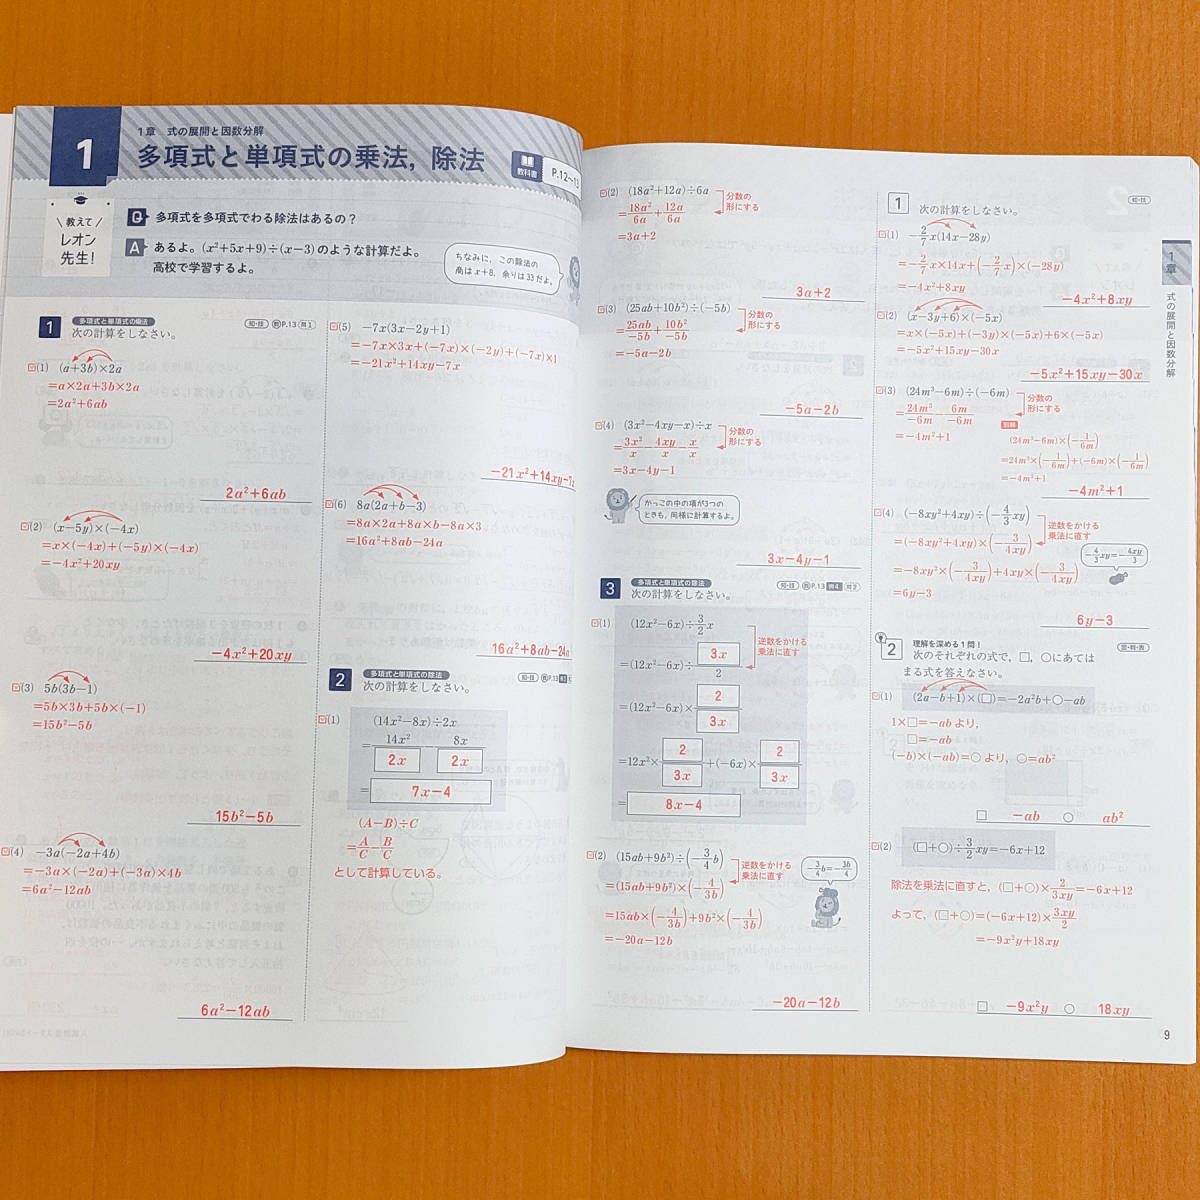 1
1章 式の展開と因数分解
多項式と単項式の乗法，除法
教科書
P.12~13
\ 教えて /
レオン
先生!
Q 多項式を多項式でわる除法はあるの？
A あるよ。(x²+5x+9)÷(x−3)のような計算だよ。
高校で学習するよ。
ちなみに，この除法の
商はx+8，余りは33だよ。
1 多項式と単項式の乗法
次の計算をしなさい。
知・技 教P.13 問1
(1) (a+3b)×2a
=a×2a+3b×2a
=2a²+6ab
2a²+6ab
(2) (x−5y)×(−4x)
=x×(−4x)+(−5y)×(−4x)
=−4x²+20xy
−4x²+20xy
(3) 5b(3b−1)
=5b×3b+5b×(−1)
=15b²−5b
15b²−5b
(4) −3a(−2a+4b)
=−3a×(−2a)+(−3a)×4b
=6a²−12ab
6a²−12ab
(5) −7x(3x−2y+1)
=−7x×3x+(−7x)×(−2y)+(−7x)×1
=−21x²+14xy−7x
−21x²+14xy−7x
(6) 8a(2a+b−3)
=8a×2a+8a×b−8a×3
=16a²+8ab−24a
16a²+8ab−24a
2 多項式と単項式の除法
次の計算をしなさい。
知・技 教P.13
(1) (14x²−8x)÷2x
=14x²/2x−8x/2x
=7x−4
(A−B)÷C
=A/C−B/C
として計算している。
(2) (18a²+12a)÷6a
=18a²/6a+12a/6a
分数の
形にする
=3a+2
3a+2
(3) (25ab+10b²)÷(−5b)
=25ab/−5b+10b²/−5b
分数の
形にする
=−5a−2b
−5a−2b
(4) (3x²−4xy−x)÷x
=3x²/x−4xy/x−x/x
分数の
形にする
=3x−4y−1
かっこの中の項が3つの
ときも，同様に計算するよ。
3x−4y−1
3 多項式と単項式の除法
次の計算をしなさい。
知・技 教P.13 例4 問2
(1) (12x²−6x)÷3/2x
=(12x²−6x)÷3x/2
逆数をかける
乗法に直す
=(12x²−6x)×2/3x
=12x²×2/3x+(−6x)×2/3x
=8x−4
(2) (15ab+9b²)÷(−3/4b)
=(15ab+9b²)×(−4/3b)
逆数をかける
乗法に直す
−3/4b=−3b/4
=15ab×(−4/3b)+9b²×(−4/3b)
=−20a−12b
−20a−12b
1 次の計算をしなさい。
知・技
(1) −2/7x(14x−28y)
=−2/7x×14x+(−2/7x)×(−28y)
=−4x²+8xy
−4x²+8xy
(2) (x−3y+6)×(−5x)
=x×(−5x)+(−3y)×(−5x)+6×(−5x)
=−5x²+15xy−30x
−5x²+15xy−30x
(3) (24m³−6m)÷(−6m)
=24m³/−6m−6m/−6m
分数の
形にする
=−4m²+1
別解
(24m³−6m)×(−1/6m)
=24m³×(−1/6m)+(−6m)×(−1/6m)
=−4m²+1
−4m²+1
(4) (−8xy²+4xy)÷(−4/3xy)
=(−8xy²+4xy)×(−3/4xy)
逆数をかける
乗法に直す
−4/3xy=−4xy/3
=−8xy²×(−3/4xy)+4xy×(−3/4xy)
=6y−3
6y−3
2 理解を深める1問！
次のそれぞれの式で，□，○にあては
まる式を答えなさい。
思・判・表
(1) (2a−b+1)×(□)=−2a²b+○−ab
1×□=−abより，
□=−ab
(−b)×(−ab)=○より，○=ab²
□ −ab ○ ab²
(2) (□+○)÷3/2xy=−6x+12
除法を乗法に直すと，(□+○)×2/3xy=−6x+12
よって，(□+○)=(−6x+12)×3xy/2
=−9x²y+18xy
□ −9x²y ○ 18xy
1章
式の展開と因数分解
9